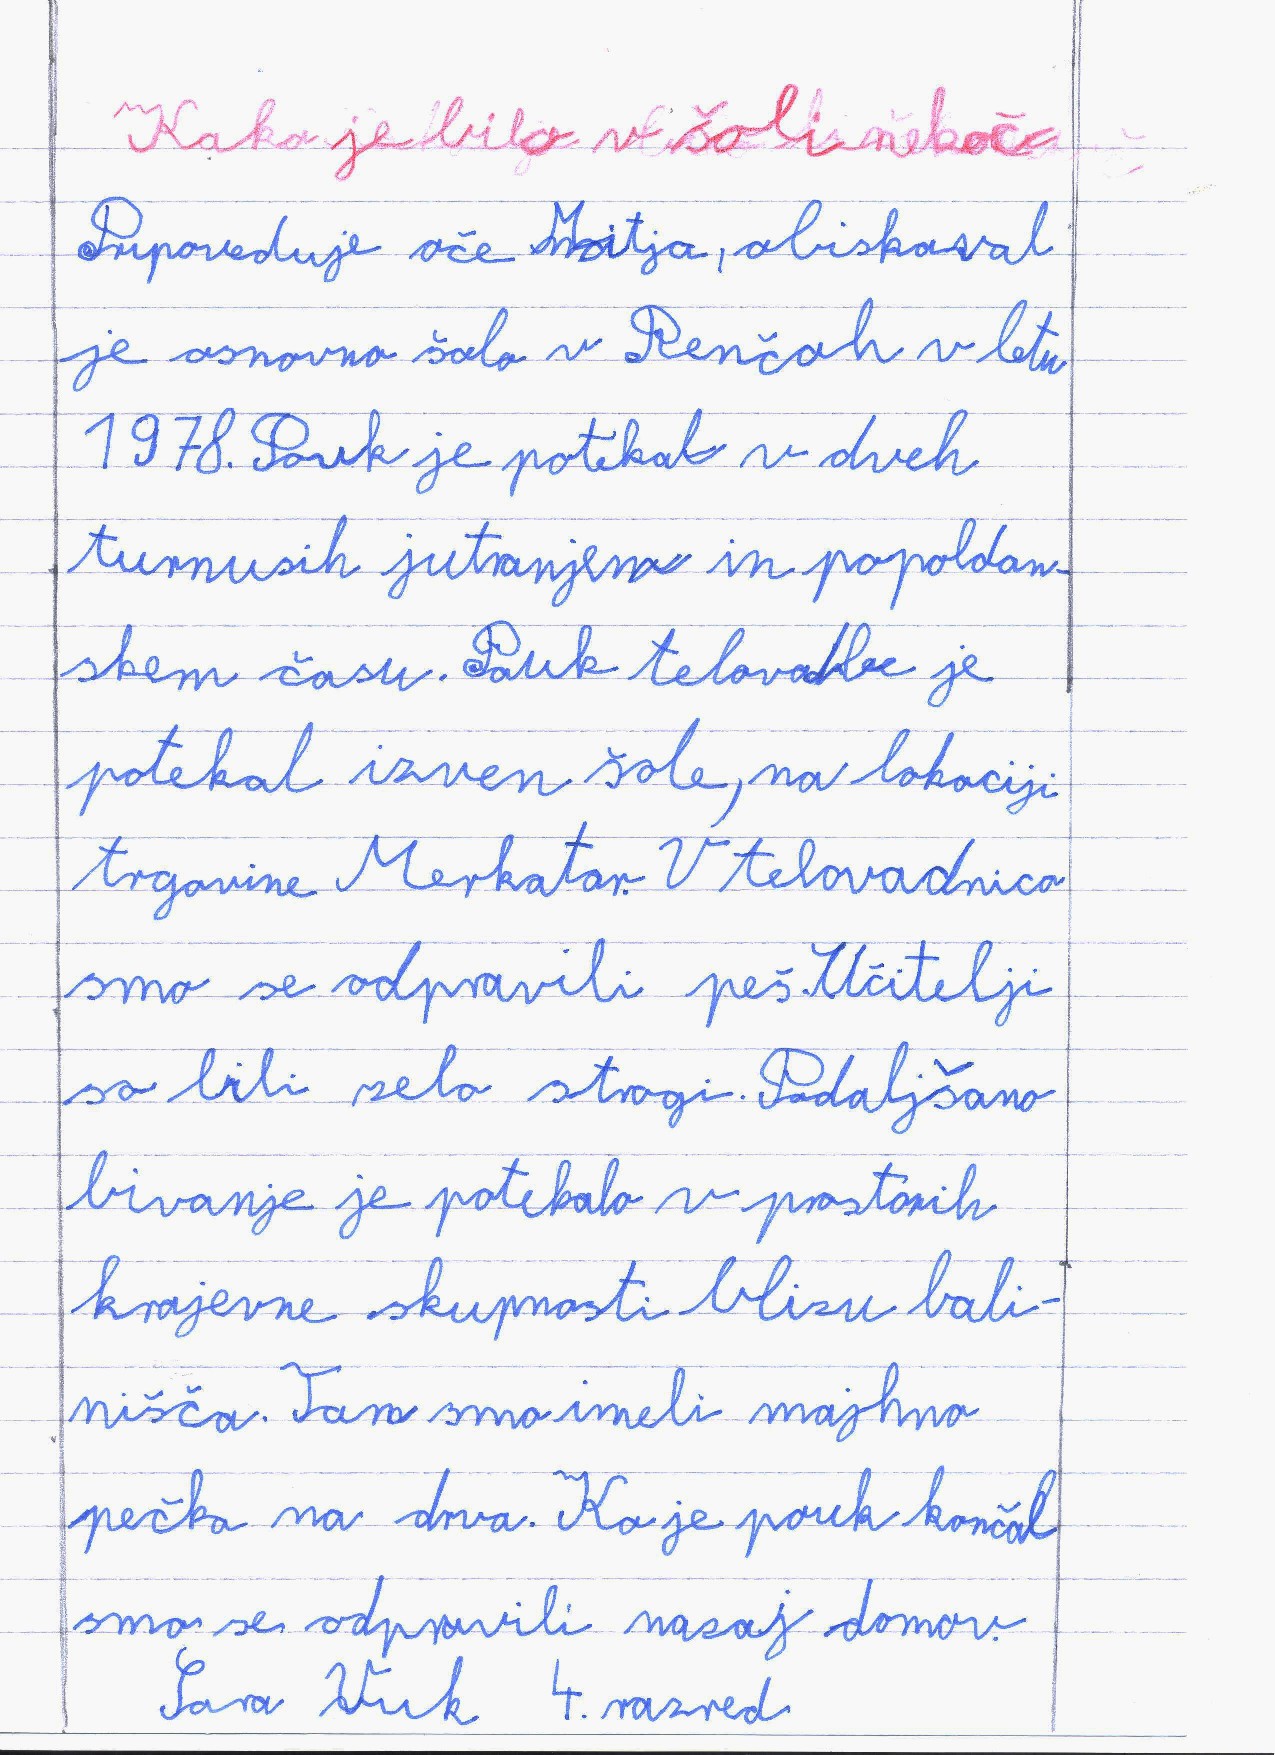 Kako je bilo v šoli nekoč
Pripoveduje oče Mitja, obiskoval
je osnovno šolo v Renčah v letu
1978. Pouk je potekal v dveh
turnusih jutranjem in popoldan-
skem času. Pouk telovadbe je
potekal izven šole, na lokaciji
trgovine Merkator. V telovadnico
smo se odpravili peš. Učitelji
so bili zelo strogi. Podaljšano
bivanje je potekalo v prostorih
krajevne skupnosti blizu bali-
nišča. Tam smo imeli majhno
pečko na drva. Ko je pouk končal
smo se odpravili nazaj domov.
Sara Vuk 4. razred